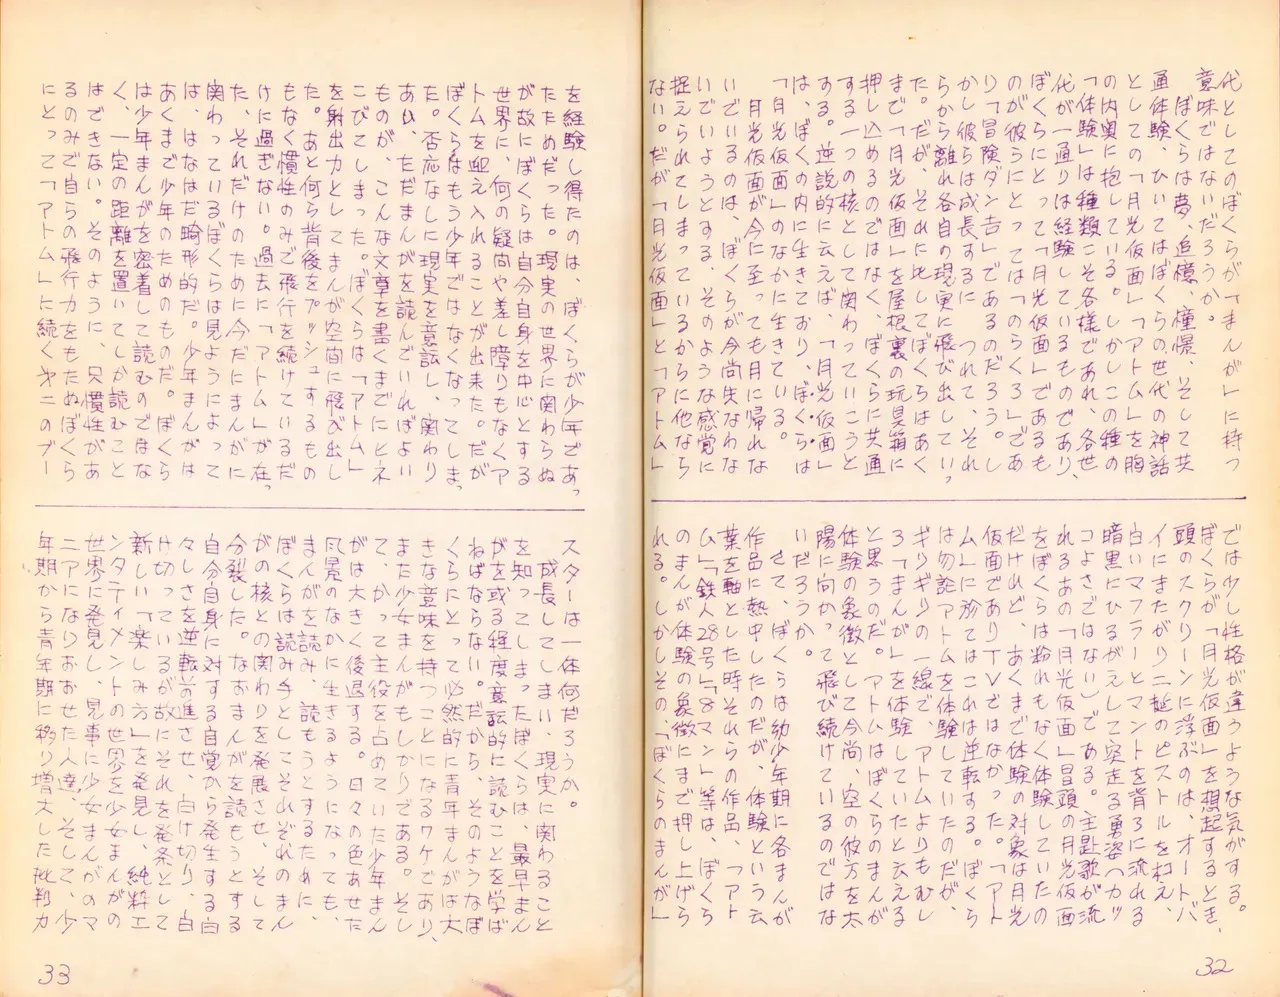 代としてのぼくらが「まんが」に持つ
意味ではないだろうか。
ぼくらは夢、追憶、憧憬、そして共
通体験、ひいてはぼくらの世代の神話
としての「月光仮面」「アトム」を胸
の内奥に抱している。しかしこの種の
「体験」は種類こそ各様であれ、各世
代が一通りは経験しているものであり、
ぼくらにとって「月光仮面」であるも
のが彼らにとっては「のらくろ」であ
り「冒険ダン吉」であるのだろう。し
かし彼らは成長するに つれて、それ
らから離れ各自の現実に飛び出していっ
た。だが、それに比してぼくらはあく
まで「月光仮面」を屋根裏の玩具箱に
押し込めるのではなく、ぼくらに共通
する一つの核として関わっていこうと
する。逆説的に云えば、「月光仮面」
は、ぼくらの内に生きており、ぼくらは
「月光仮面」のなかに生きている。
月光仮面が今に至っても月に帰れな
いでいるのは、ぼくらが今尚失なわな
いでいようとする、そのような感覚に
捉えられてしまっているからに他なら
ない。だが「月光仮面」と「アトム」
では少し性格が違うような気がする。
ぼくらが「月光仮面」を想起するとき、
頭のスクリーンに浮ぶのは、オートバ
イにまたがり二挺のピストルをかまえ、
白いマフラーとマントを背ろに流れる
暗黒にひるがえして突走る勇姿(カッ
コよさではない)である。主題歌が流
れるあの「月光仮面」冒頭の月光仮面
をぼくらは紛れもなく体験していたの
だけれど、あくまで体験の対象は月光
仮面でありTVではなかった。「アト
ム」に於てはこれは逆転する。ぼくら
は勿論アトムを体験していたのだが、
ギリギリの一線で、アトムよりもむし
ろ「まんが」を体験していたと云える
と思うのだ。アトムはぼくらのまんが
体験の象徴として今尚、空の彼方を太
陽に向かって飛び続けているのではな
いだろうか。
さて、ぼくらは幼少年期に各まんが
作品に熱中したのだが、体験という云
葉を軸とした時それらの作品、「アト
ム」「鉄人28号」「8マン」等は、ぼくら
のまんが体験の象徴にまで押し上げら
れる。しかしその、「ぼくらのまんが」
32
を経験し得たのは、ぼくらが少年であっ
たためだった。現実の世界に関わらぬ
が故にぼくらは自分自身を中心とする
世界に、何の疑問や差し障りもなくア
トムを迎え入れることが出来た。だが
ぼくらはもう少年ではなくなってしまっ
た。否応なしに現実を意識し、関わり
あい、ただまんがを読んでいればよい
ものが、こんな文章を書くまでにヒネ
こびてしまった。ぼくらは「アトム」
を射出力としてまんが空間に飛び出し
た。あと何ら背後をプッシュするもの
もなく慣性のみで飛行を続けているだ
けに過ぎない。過去に「アトム」が在っ
た、それだけのために今だにまんがに
関わっているぼくらは見ようによって
は、はなはだ畸形的だ。少年まんがは
あくまで少年のためのものだ。ぼくら
は少年まんがを密着して読むのではな
く、一定の距離を置いてしか読むこと
はできない。そのように、只慣性があ
るのみで自らの飛行力をもたぬぼくら
にとって「アトム」に続く才二のブー
スターは一体何だろうか。
成長してしまい、現実に関わること
を知ってしまったぼくらは、最早まん
がを或る程度意識的に読むことを学ば
ねばならない。だから、そのようなぼ
くらにとって必然的に青年まんがは大
きな意味を持つことになるワケであり、
また少女まんがもしかりである。そし
て、かつて主役を占めていた少年まん
がは大きく後退する。日々の色あせた
風景のなかに生きるようになっても、
まんがを読み、読もうとするために、
ぼくらは読み手としこそれぞれのまん
がの核との関わりを発展させ、そして
分裂した。なおまんがを読もうとする
自分自身に対する自覚から発生する白
々しさを逆転前進させ、白け切り、白
け切っているが故にそれを発条として
新しい「楽しみ方」を発見し、純粋エ
ンタティメントの世界を少女まんがの
世界に発見し、見事に少女まんがのマ
ニアになりおおせた人達、そして、少
年期から青年期に移り増大した批判力
33